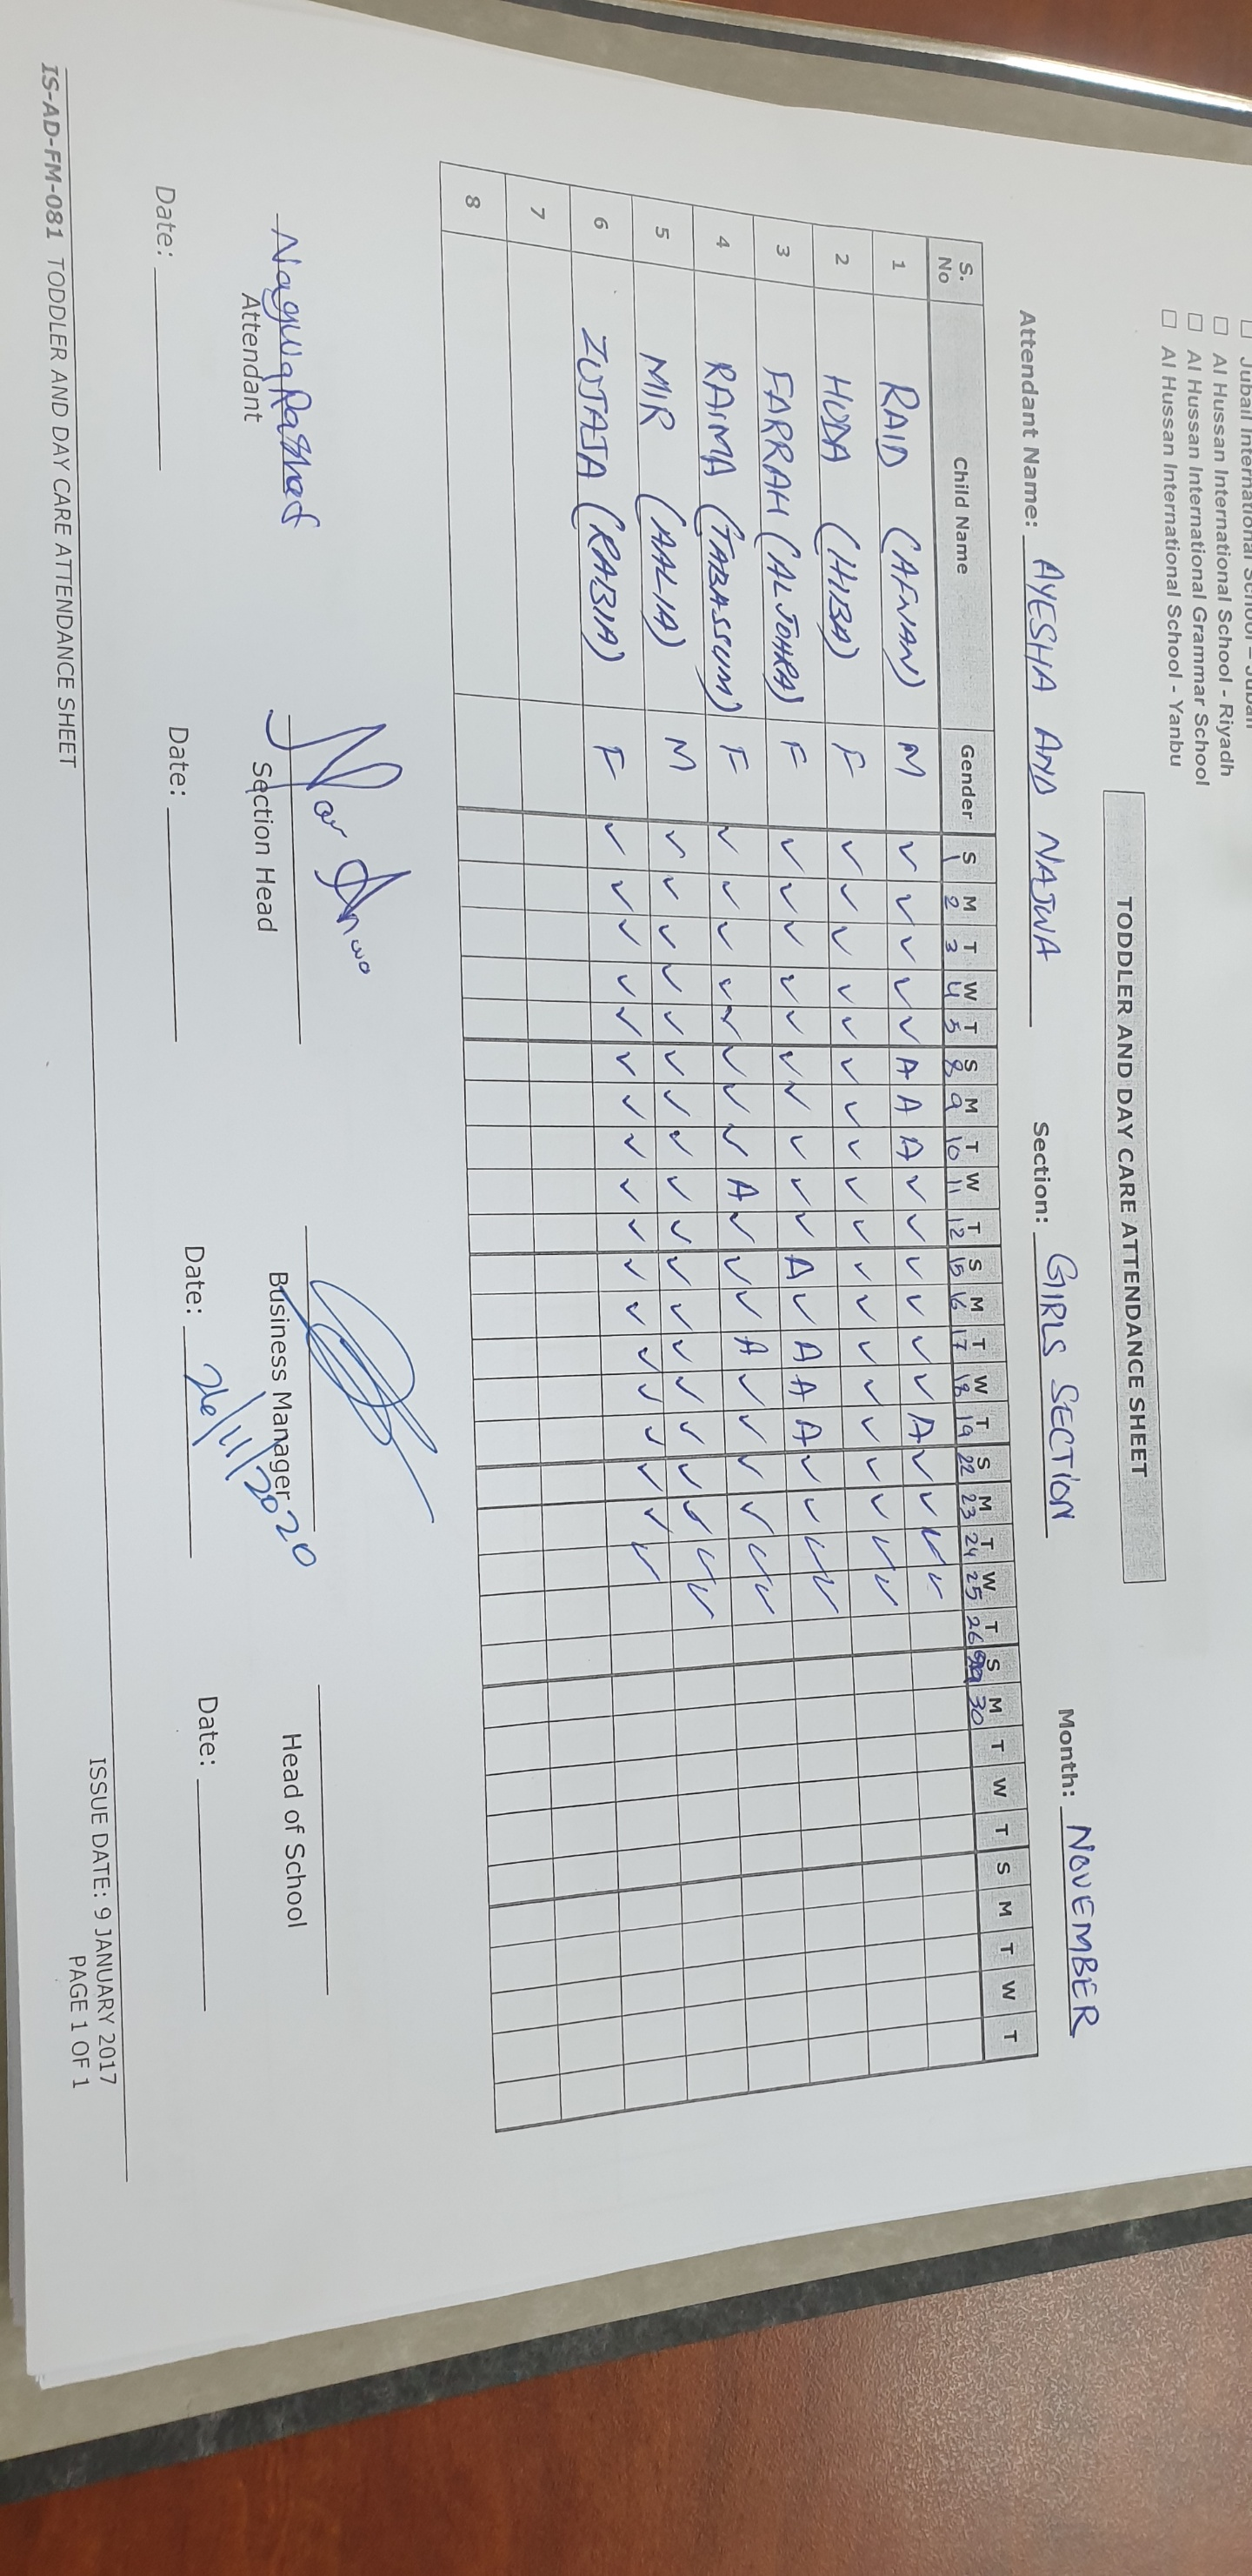 Jubail International School - Jubail
☐ Al Hussan International School - Riyadh
☐ Al Hussan International Grammar School
☐ Al Hussan International School - Yanbu
TODDLER AND DAY CARE ATTENDANCE SHEET
Attendant Name: AYESHA AND NAJWA Section: GIRLS SECTION Month: NOVEMBER
S. No Child Name Gender S M T W T S M T W T S M T W T S M T W T S M T W T S M T W T
1 2 3 4 5 8 9 10 11 12 15 16 17 18 19 22 23 24 25 26 29 30
1 RAID (AFNAN) M ✓ ✓ ✓ ✓ ✓ A A A ✓ ✓ ✓ ✓ ✓ ✓ A ✓ ✓ ✓ ✓
2 HUDA (HIBA) F ✓ ✓ ✓ ✓ ✓ ✓ ✓ ✓ ✓ ✓ ✓ ✓ ✓ ✓ ✓ ✓ ✓ ✓ ✓
3 FARRAH (ALJOHRA) F ✓ ✓ ✓ ✓ ✓ ✓ ✓ ✓ ✓ ✓ A ✓ A A A ✓ ✓ ✓ ✓
4 RAIMA (TABASSUM) F ✓ ✓ ✓ ✓ ✓ ✓ ✓ ✓ A ✓ ✓ ✓ A ✓ ✓ ✓ ✓ ✓ ✓
5 MIR (AALIA) M ✓ ✓ ✓ ✓ ✓ ✓ ✓ ✓ ✓ ✓ ✓ ✓ ✓ ✓ ✓ ✓ ✓ ✓ ✓
6 ZUJAJA (RABIA) F ✓ ✓ ✓ ✓ ✓ ✓ ✓ ✓ ✓ ✓ ✓ ✓ ✓ ✓ ✓ ✓ ✓ ✓
7
8
Attendant Section Head Business Manager Head of School
Date: Date: Date: 26/11/2020 Date:
IS-AD-FM-081 TODDLER AND DAY CARE ATTENDANCE SHEET ISSUE DATE: 9 JANUARY 2017
PAGE 1 OF 1